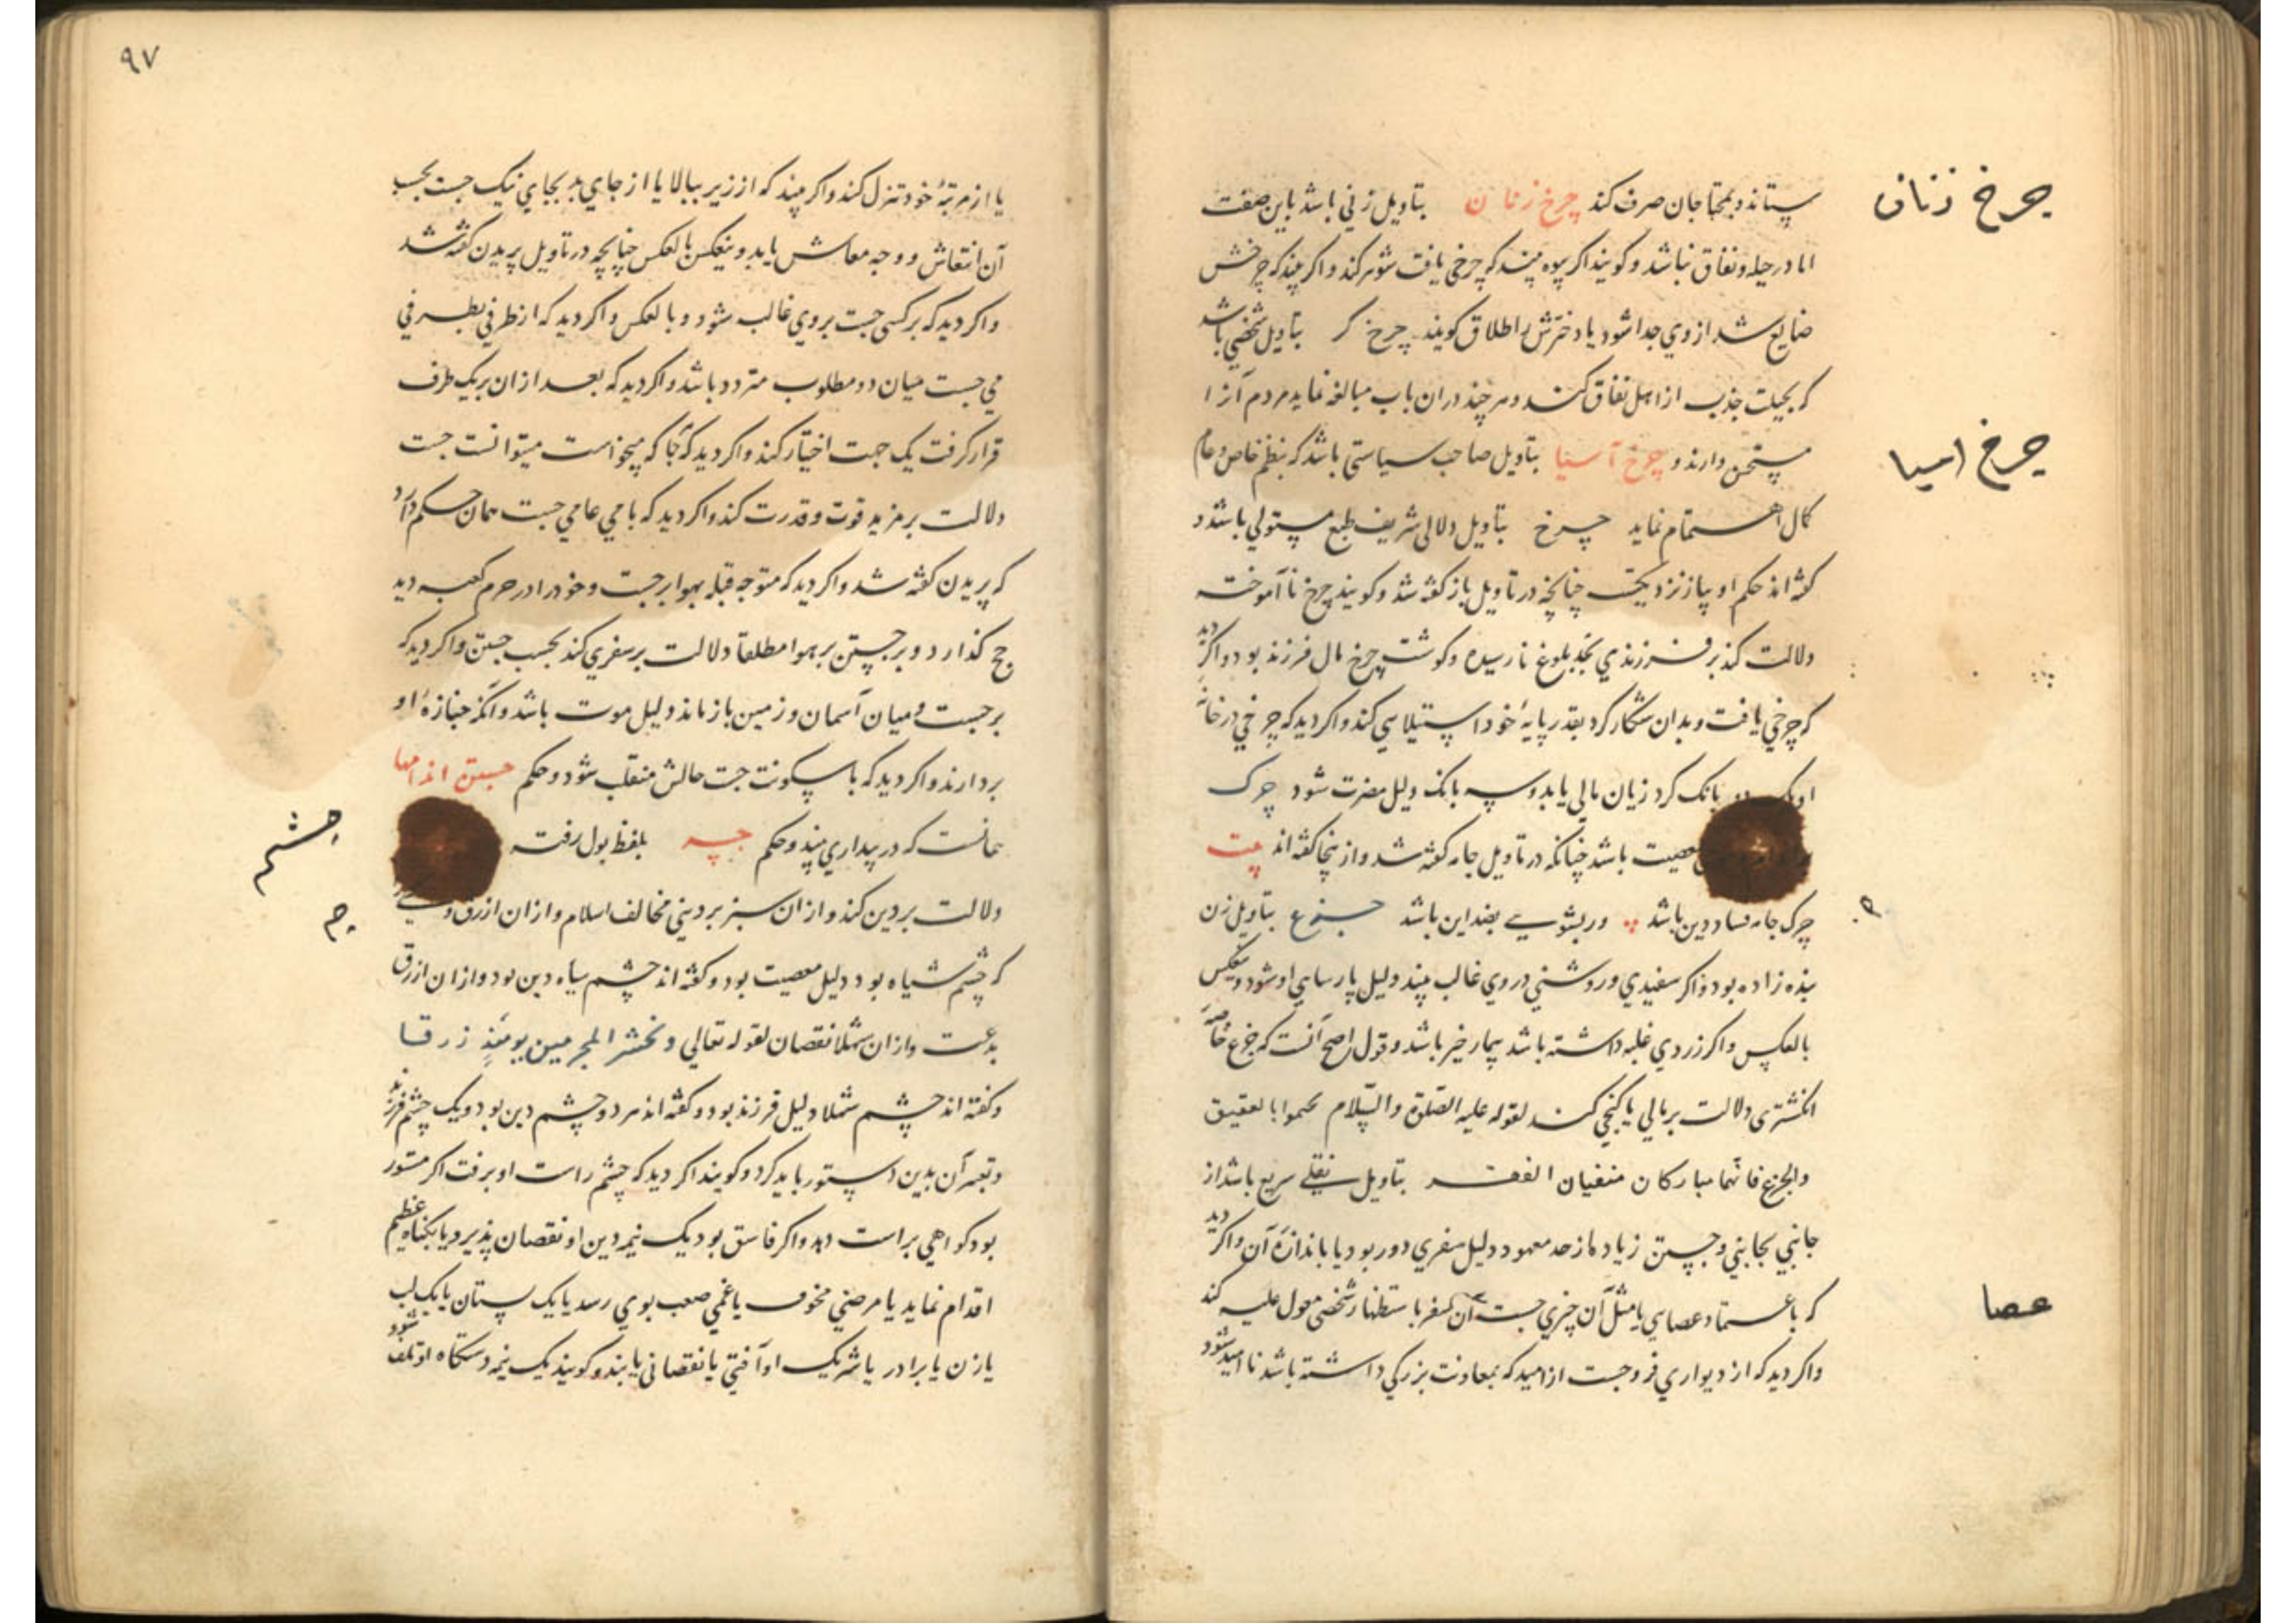 چرخ زنان
ستاند و بمحتاجان صرف کند چرخ زنان بتاویل زنی باشد باین صفت
اما در حیله و نفاق نباشد و کویند اکر بیوه بیند که چرخی یافت شوهر کند و اکر بیند که چرخش
ضایع شد از وی جدا شود یا دخترش را طلاق کویند چرخ کر بتاویل شخصی باشد
که بحیلت جذب از اهل نفاق کند و هر چند دران باب مبالغه نماید مردم آنرا
چرخ اسیا
مستحسن دارند و چرخ آسیا بتاویل صاحب سیاستی باشد که بنظم خاص و عام
کمال اهتمام نماید چرخ بتاویل دلالی شریف طبع مستولی باشد و
کفته اند حکم او بباز نزدیکست چنانچه در تاویل باز کفته شد و کویند چرخ نا آموخته
دلالت کند بر فرزندی بحد بلوغ نا رسیده و کوشت چرخ مال فرزند بود و اکر دید
که چرخی یافت و بدان شکار کرد بقدر پایهٔ خود استیلا یی کند و اکر دید که چرخی در خانه
او یک دو بانک کرد زیان مالی یابد و سه بانک دلیل مضرت شود چرک
معصیت باشد چنانکه در تاویل جامه کفته شد و ازینجا کفته اند بیت
چرک جامه فساد دین باشد ور بشویی بضد این باشد جزع بتاویل زن
بنده زاده بود و اکر سفیدی و روشنی در وی غالب بیند دلیل پارسایی او شود و بعکس
بالعکس و اکر زردی غلبه داشته باشد بیمار خیز باشد و قول اصح آنست که جزع خاصه
انکشتری دلالت بر مالی یا کنجی کند لقوله علیه الصلوة والسلام تختموا بالعقیق
والجزع فانهما مبارکان منفیان الفقر بتاویل نقلی سریع باشد از
جانبی بجانبی و جستن زیاده از حد معهود دلیل سفری دور بود یا باندازهٔ آن و اکر دید
عصا
که باعتماد عصایی یا مثل آن چیزی جست آن سفر باستظهار شخصی معول علیه کند
و اکر دید که از دیواری فرو جست از امید که بمعاونت بزرکی داشته باشد نا امید شود
۹۷
یا از مرتبهٔ خود تنزل کند و اکر بیند که از زیر ببالا یا از جای بد بجای نیک جست بحسب
آن انتعاش و وجه معاش یابد و بعکس بالعکس چنانچه در تاویل پریدن کفته شد
و اکر دید که بر کسی جست بر وی غالب شود و بالعکس و اکر دید که از طرفی بطرفی
می جست میان دو مطلوب متردد باشد و اکر دید که بعد ازان بر یک طرف
قرار کرفت یک جهت اختیار کند و اکر دید که آنجا که میخواست میتوانست جست
دلالت بر مزید قوت و قدرت کند و اکر دید که با می عامی جست همان حکم دارد
که پریدن کفته شد و اکر دید که متوجه قبله بهوا بر جست و خود را در حرم کعبه دید
حج کذارد و بر جستن بر هوا مطلقا دلالت بر سفری کند بحسب جستن و اکر دید که
بر جست و میان آسمان و زمین باز ماند دلیل موت باشد و آنکه جنازهٔ او
بردارند و اکر دید که باسکونت جست حالش منقلب شود و حکم جستن اندامها
چشم
همانست که در بیداری بیند و حکم جسه بلفظ بول رفته
دلالت بر دین کند و ازان سبز بر دینی مخالف اسلام و ازان ازرق و
که چشم سیاه بود دلیل معصیت بود و کفته اند چشم سیاه دین بود و ازان ازرق
بدعت و ازان شهلا نقصان لقوله تعالی و نحشر المجرمین یومئذ زرقا
و کفته اند چشم شهلا دلیل فرزند بود و کفته اند هر دو چشم دین بود و یک چشم فرزند
و تعبیر آن بدین دستور باید کرد و کویند اکر دید که چشم راست او برفت اکر مستور
بود کواهی براست دهد و اکر فاسق بود یک نیمه دین او نقصان پذیرد یا بکناه عظیم
اقدام نماید یا مرضی مخوف یا غمی صعب بوی رسد یا یک پستان یا یک لب
یا زن یا برادر یا شریک او آفتی یا نقصانی یابند و کویند یک نیمه دستکاه او تلف شود